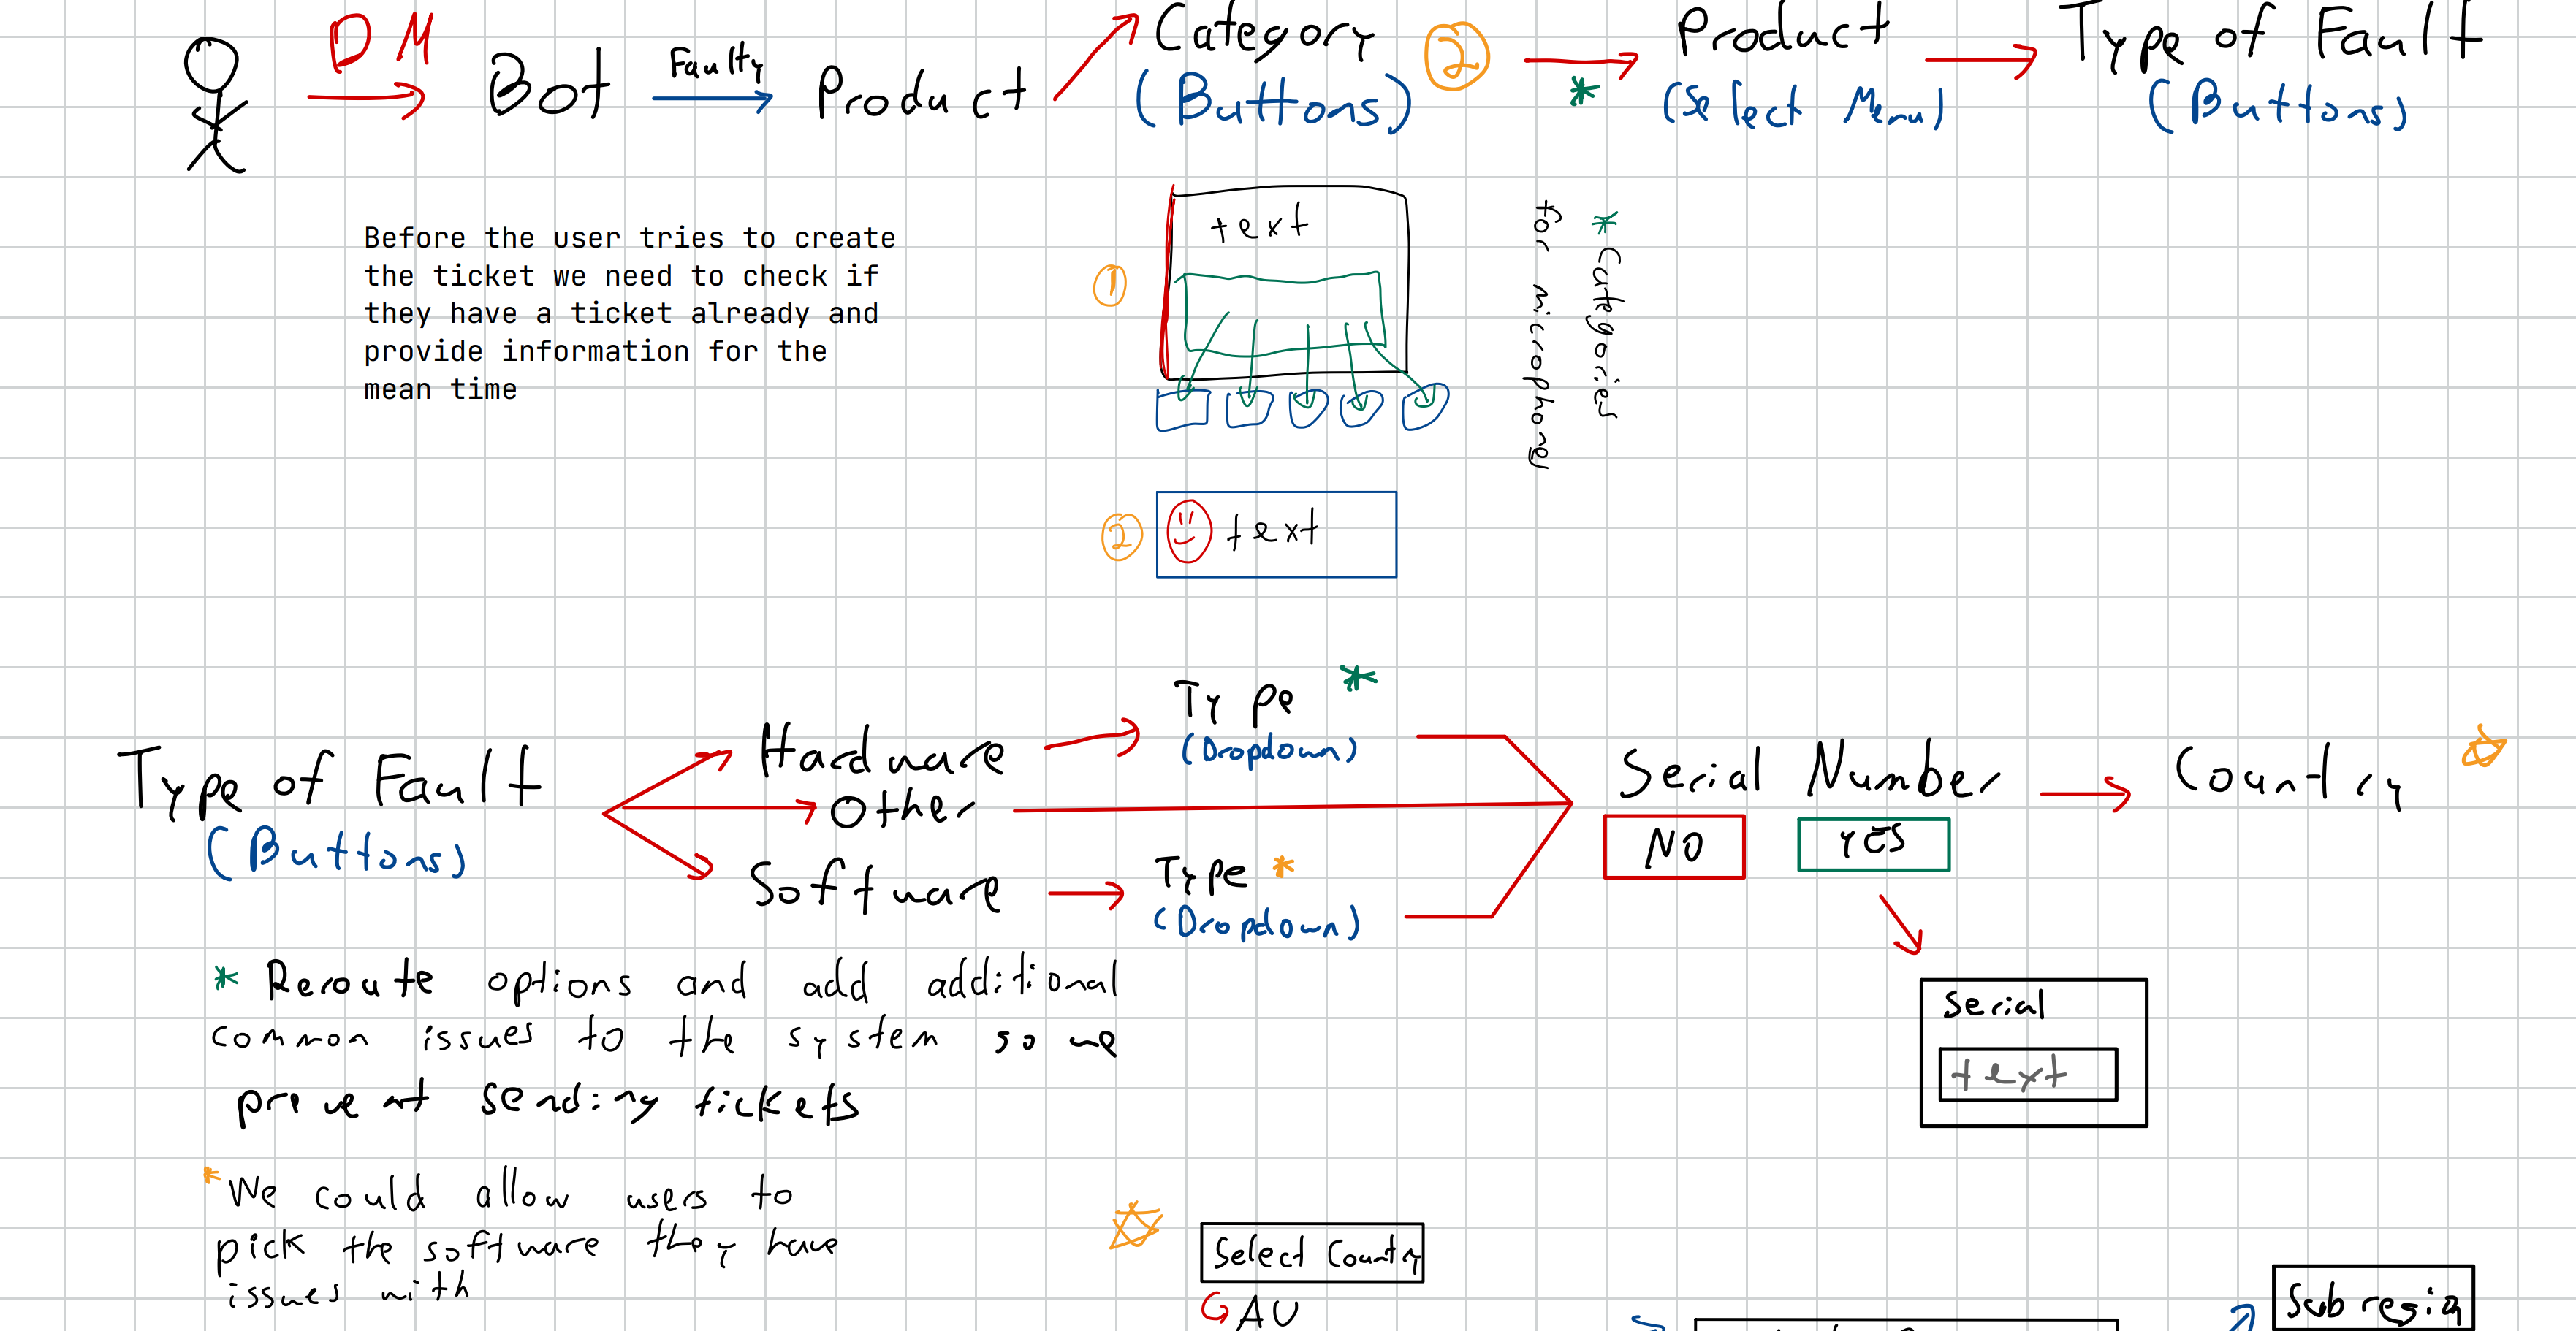 DM
Bot
Faulty
Product
Category
(Buttons)
2
*
Product
(Select Menu)
Type of Fault
(Buttons)
Before the user tries to create
the ticket we need to check if
they have a ticket already and
provide information for the
mean time
1
text
* Categories
for microphones
2
text
Type of Fault
(Buttons)
Hardware
Other
Software
Type *
(Dropdown)
Type *
(Dropdown)
Serial Number
NO
YES
Country
Serial
text
* Reroute options and add additional
common issues to the system so we
prevent sending tickets
* We could allow users to
pick the software they have
issues with
Select Country
AU
Sub region